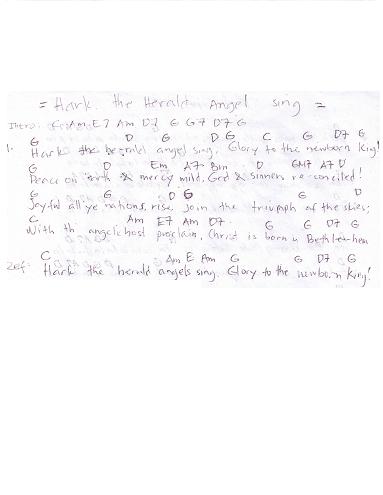 = Hark. the Herald Angel sing =
Intro: C Am E7 Am D7 G G7 D7 G
G D G D G C G D7 G
1. Hark the herald angel sing, Glory to the newborn King!
G D Em A7 Bm D GM7 A7 D
Peace on earth & mercy mild, God & sinners re-conciled!
G G D G G D
Joyful all ye nations, rise, Join the triumph of the skies;
C Am E7 Am D7 G G D7 G
With th angelic host proclaim, Christ is born in Bethlehem
C Am E Am G G D7 G
Ref: Hark the herald angels sing. Glory to the newborn King!